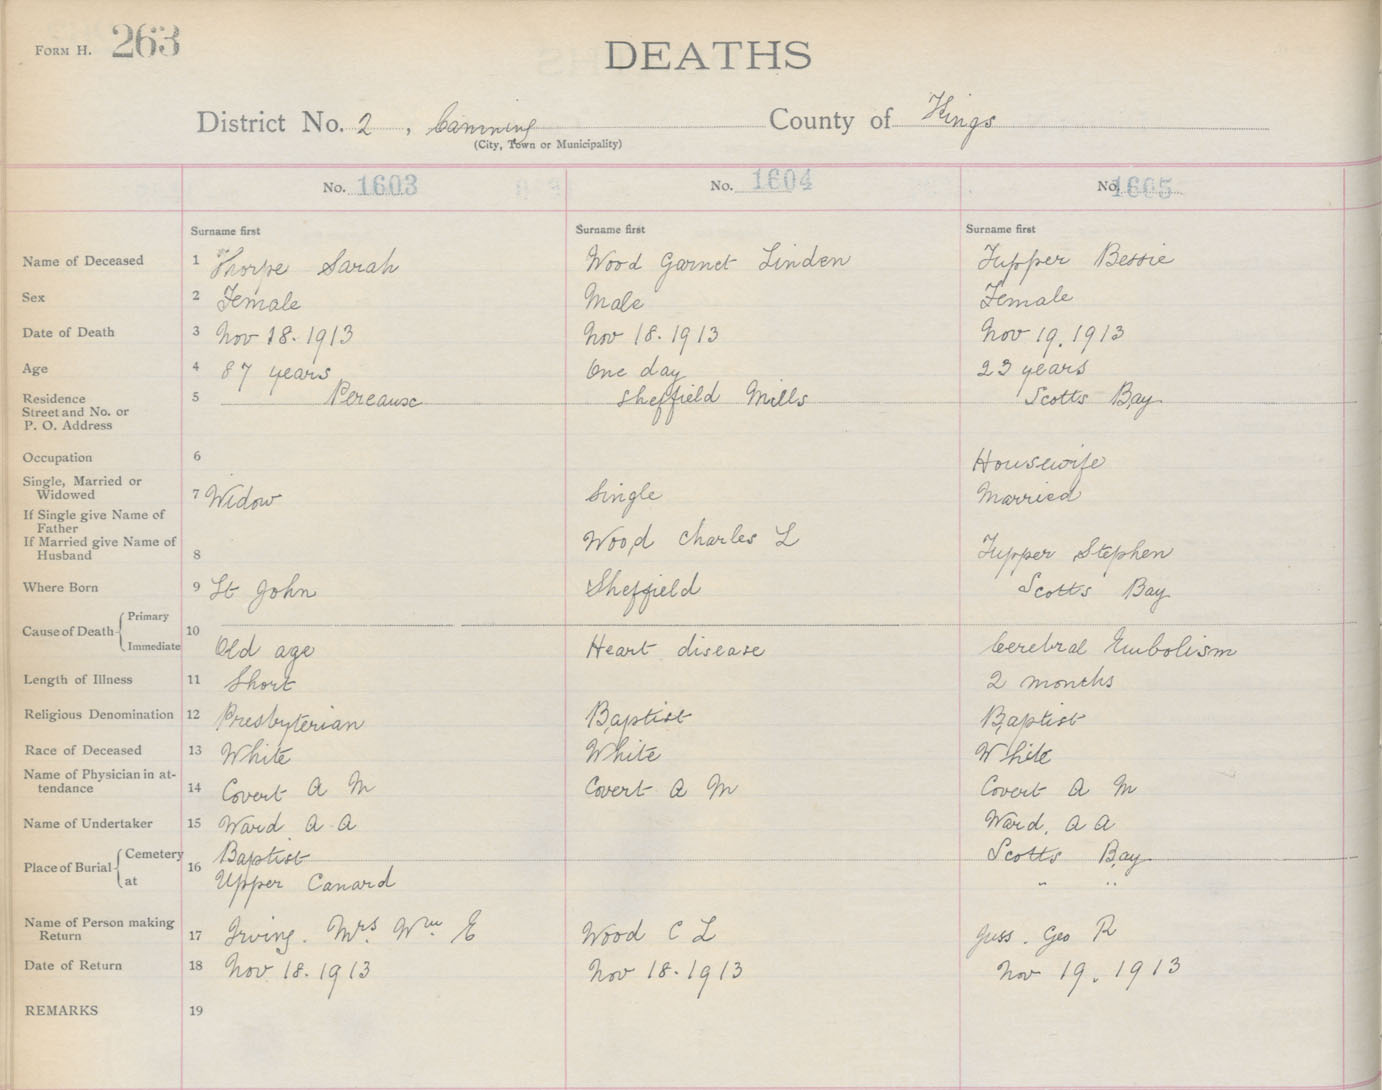 FORM H. 263
DEATHS
District No. 2, Canning County of Kings
(City, Town or Municipality)
No. 1603 No. 1604 No. 1605
Surname first Surname first Surname first
Name of Deceased 1 Thorpe Sarah Wood Garnet Linden Tupper Bessie
Sex 2 Female Male Female
Date of Death 3 Nov 18. 1913 Nov 18. 1913 Nov 19. 1913
Age 4 87 years One day 23 years
Residence 5 Pereaux Sheffield Mills Scotts Bay
Street and No. or
P. O. Address
Occupation 6 Housewife
Single, Married or
Widowed 7 Widow Single Married
If Single give Name of
Father
If Married give Name of Wood Charles L
Husband 8 Tupper Stephen
Where Born 9 St John Sheffield Scotts Bay
Cause of Death Primary 10
Immediate Old age Heart disease Cerebral Embolism
Length of Illness 11 Short 2 months
Religious Denomination 12 Presbyterian Baptist Baptist
Race of Deceased 13 White White White
Name of Physician in at-
tendance 14 Covert A M Covert A M Covert A M
Name of Undertaker 15 Ward A A Ward. A A
Place of Burial Cemetery 16 Baptist Scotts Bay
at Upper Canard " "
Name of Person making
Return 17 Irving. Mrs. Wm E Wood C L Geo R
Date of Return 18 Nov 18. 1913 Nov 18. 1913 Nov 19. 1913
REMARKS 19